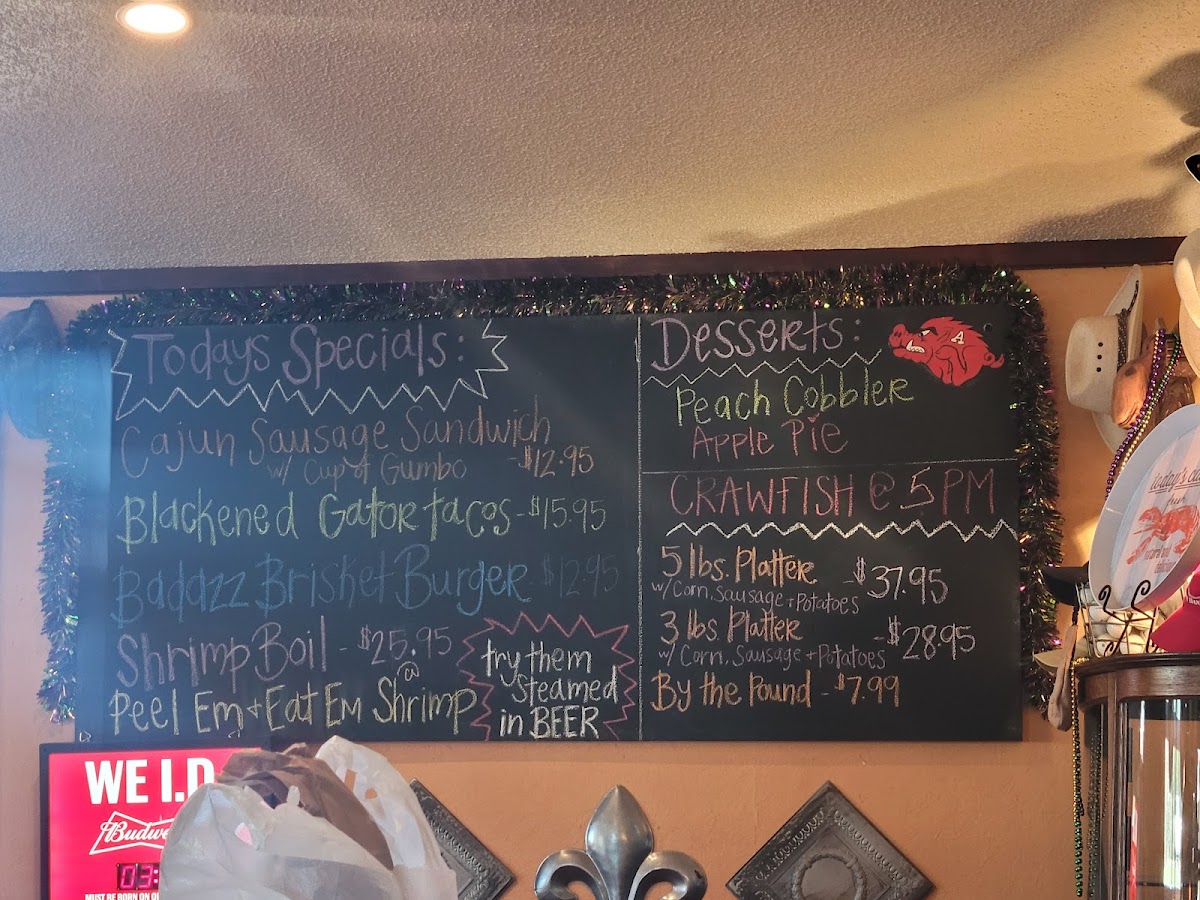 Todays Specials:
Cajun Sausage Sandwich
w/ Cup of Gumbo -$12.95
Blackened Gator tacos -$15.95
Badazz Brisket Burger $12.95
Shrimp Boil - $25.95
@
Peel Em + Eat Em Shrimp
try them
steamed
in BEER
Desserts:
A
Peach Cobbler
Apple Pie
CRAWFISH @ 5 PM
5 lbs. Platter -$37.95
w/ Corn, Sausage + Potatoes
3 lbs. Platter -$28.95
w/ Corn, Sausage + Potatoes
By the Pound - $7.99
WE I.D.
03:
MUST BE BORN ON
today's